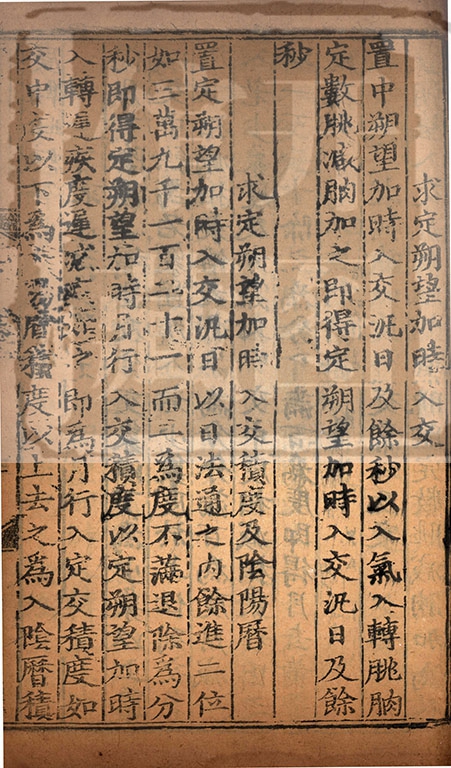 求定朔望加時入交
置中朔望加時入交汎日及餘秒以入氣入轉朓朒
定數朓減朒加之即得定朔望加時入交汎日及餘
秒
求定朔望加時入交積度及陰陽曆
置定朔望加時入交汎日以日法通之内餘進二位
如三萬九千一百二十一而一為度不滿退除為分
秒即得定朔望加時月行入交積度以定朔望加時
入轉遲疾度遲減疾加之即為月行入定交積度如
交中度以下為入陽曆積度以上去之為入陰曆積